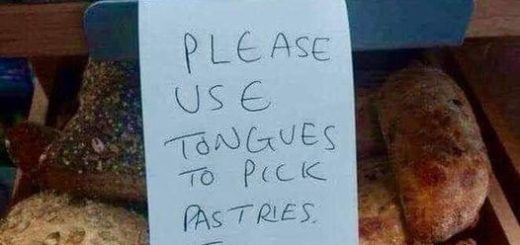 PLEASE
USE
TONGUES
TO PICK
PASTRIES.